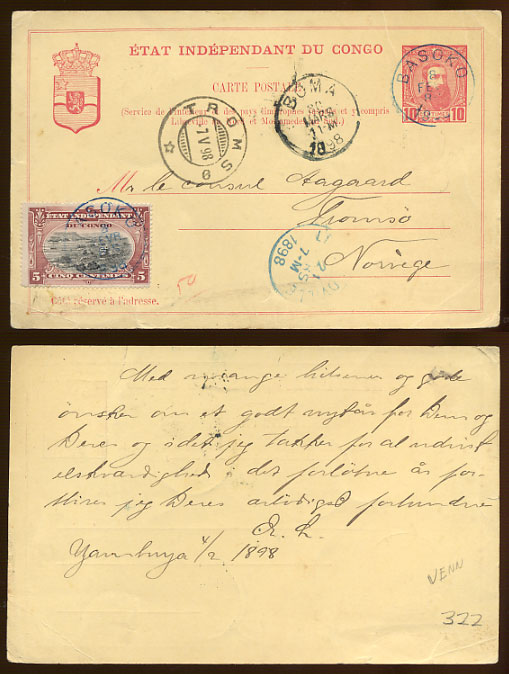 ÉTAT INDÉPENDANT DU CONGO
CARTE POSTALE
(Service de l'intérieur et des pays limitrophes y compris
Libreville et Mossamedes
BASOKO
10 10
BOMA
1898
TROMSØ
7 V 98
Mr le consul Aagaard
Tromsö
Norvège
ÉTAT INDÉPENDANT
DU CONGO
5 CINQ CENTIMES 5
1898
7-M
50
Côté réservé à l'adresse.
Med mange hilsener og gode
ønsker om et godt nytår for Dem og
Deres og idet jeg takker for al udvist
elskværdighed i det forløbne år for-
bliver jeg Deres ærbødigst forbundne
Yambuya 4/2 1898
VENN
322